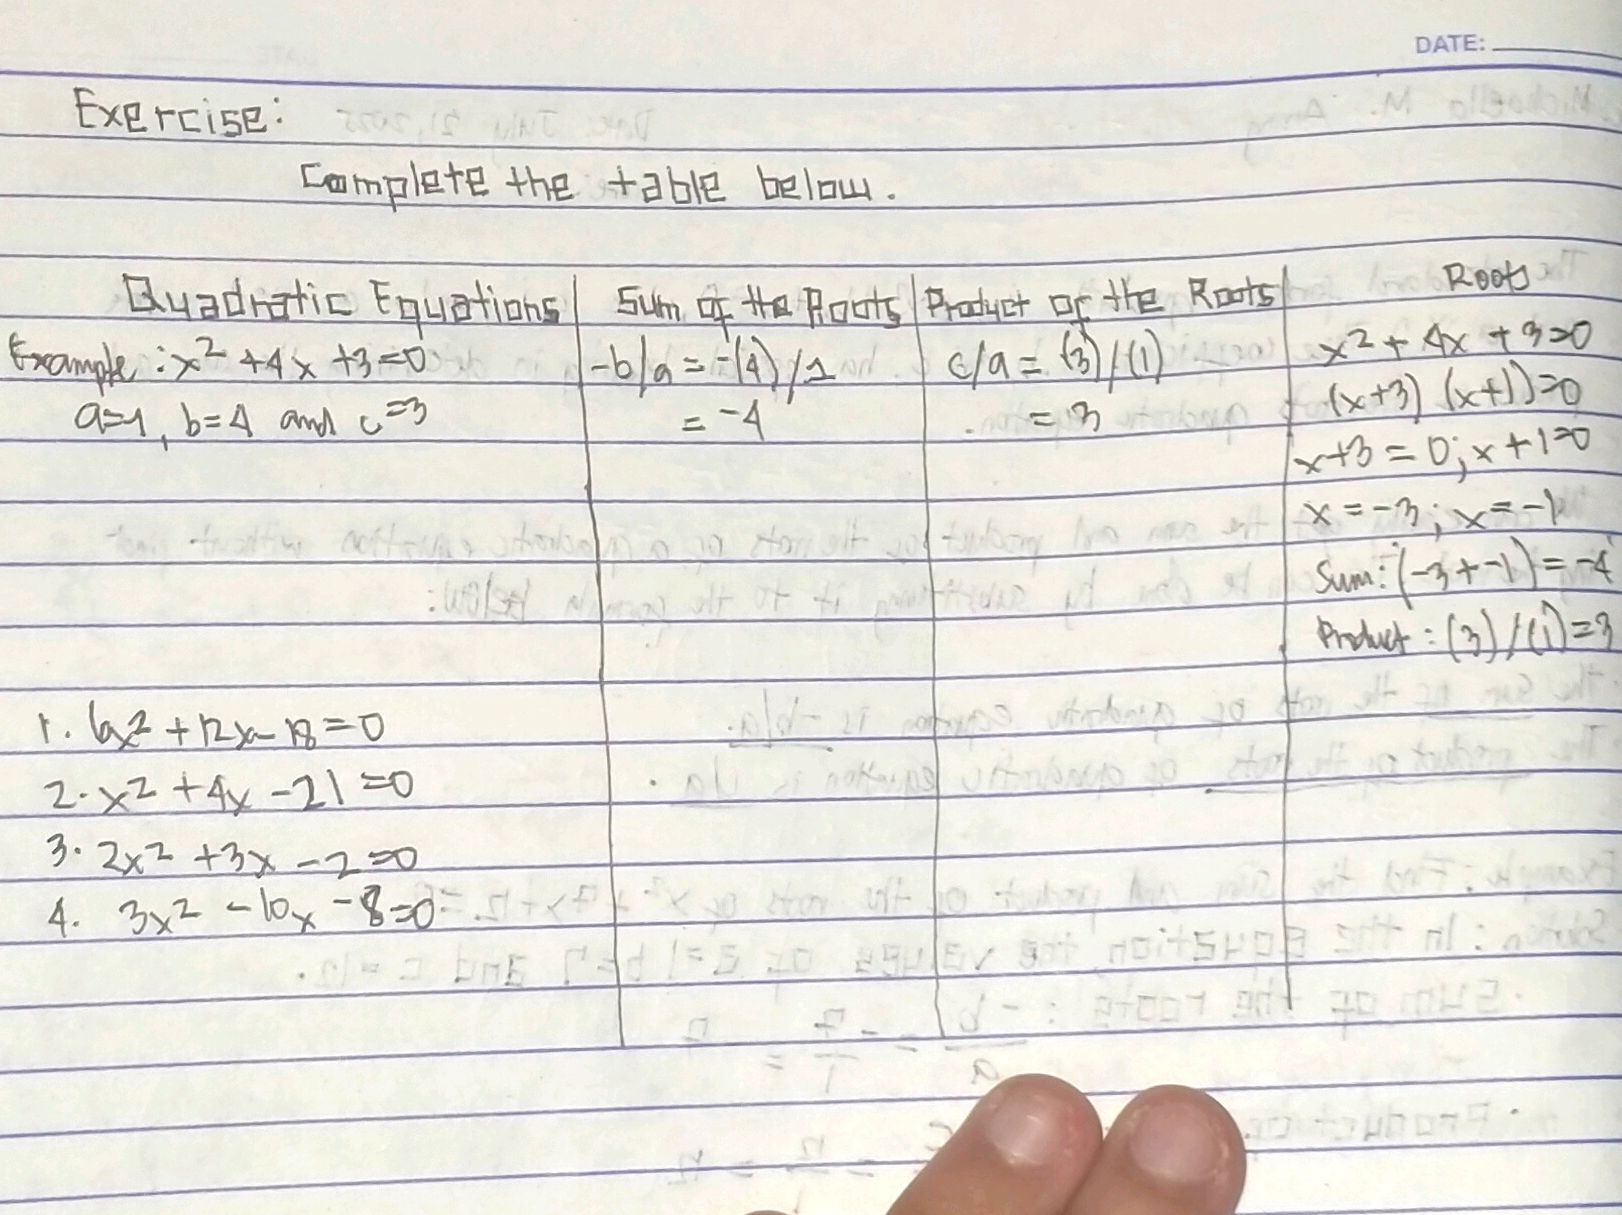 DATE:
Exercise:
Complete the table below.
Quadratic Equations | Sum of the Roots | Product of the Roots | Roots
Example : x² + 4x + 3 = 0 | -b/a = -(4)/1 | c/a = (3)/(1) | x² + 4x + 3 = 0
a=1, b=4 and c=3 | = -4 | = 3 | (x+3) (x+1) = 0
x+3 = 0; x+1=0
x = -3; x = -1
Sum: (-3 + -1) = -4
Product : (3)/(1) = 3
1. 6x² + 12x - 18 = 0
2. x² + 4x - 21 = 0
3. 2x² + 3x - 2 = 0
4. 3x² - 10x - 8 = 0